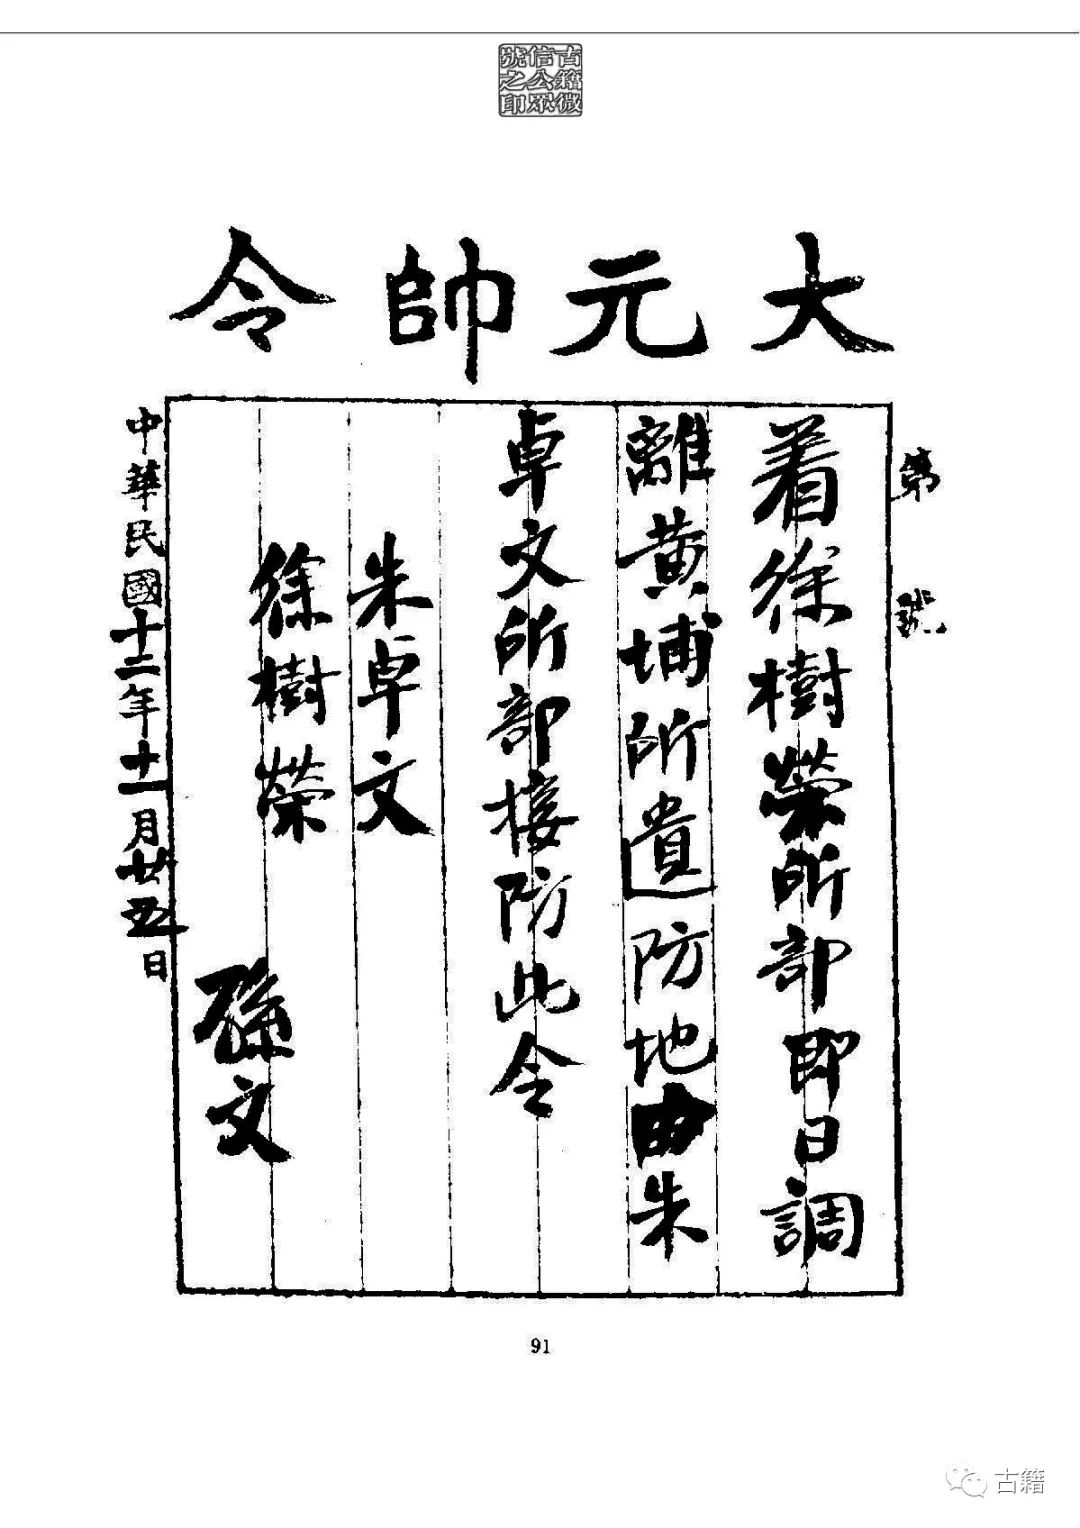 古籍微
信公眾
號之印
大元帥令
第 號
着徐樹榮所部即日調
離黃埔所遺防地由朱
卓文所部接防此令
朱卓文
徐樹榮
孫文
中華民國十二年十一月廿五日
91
古籍